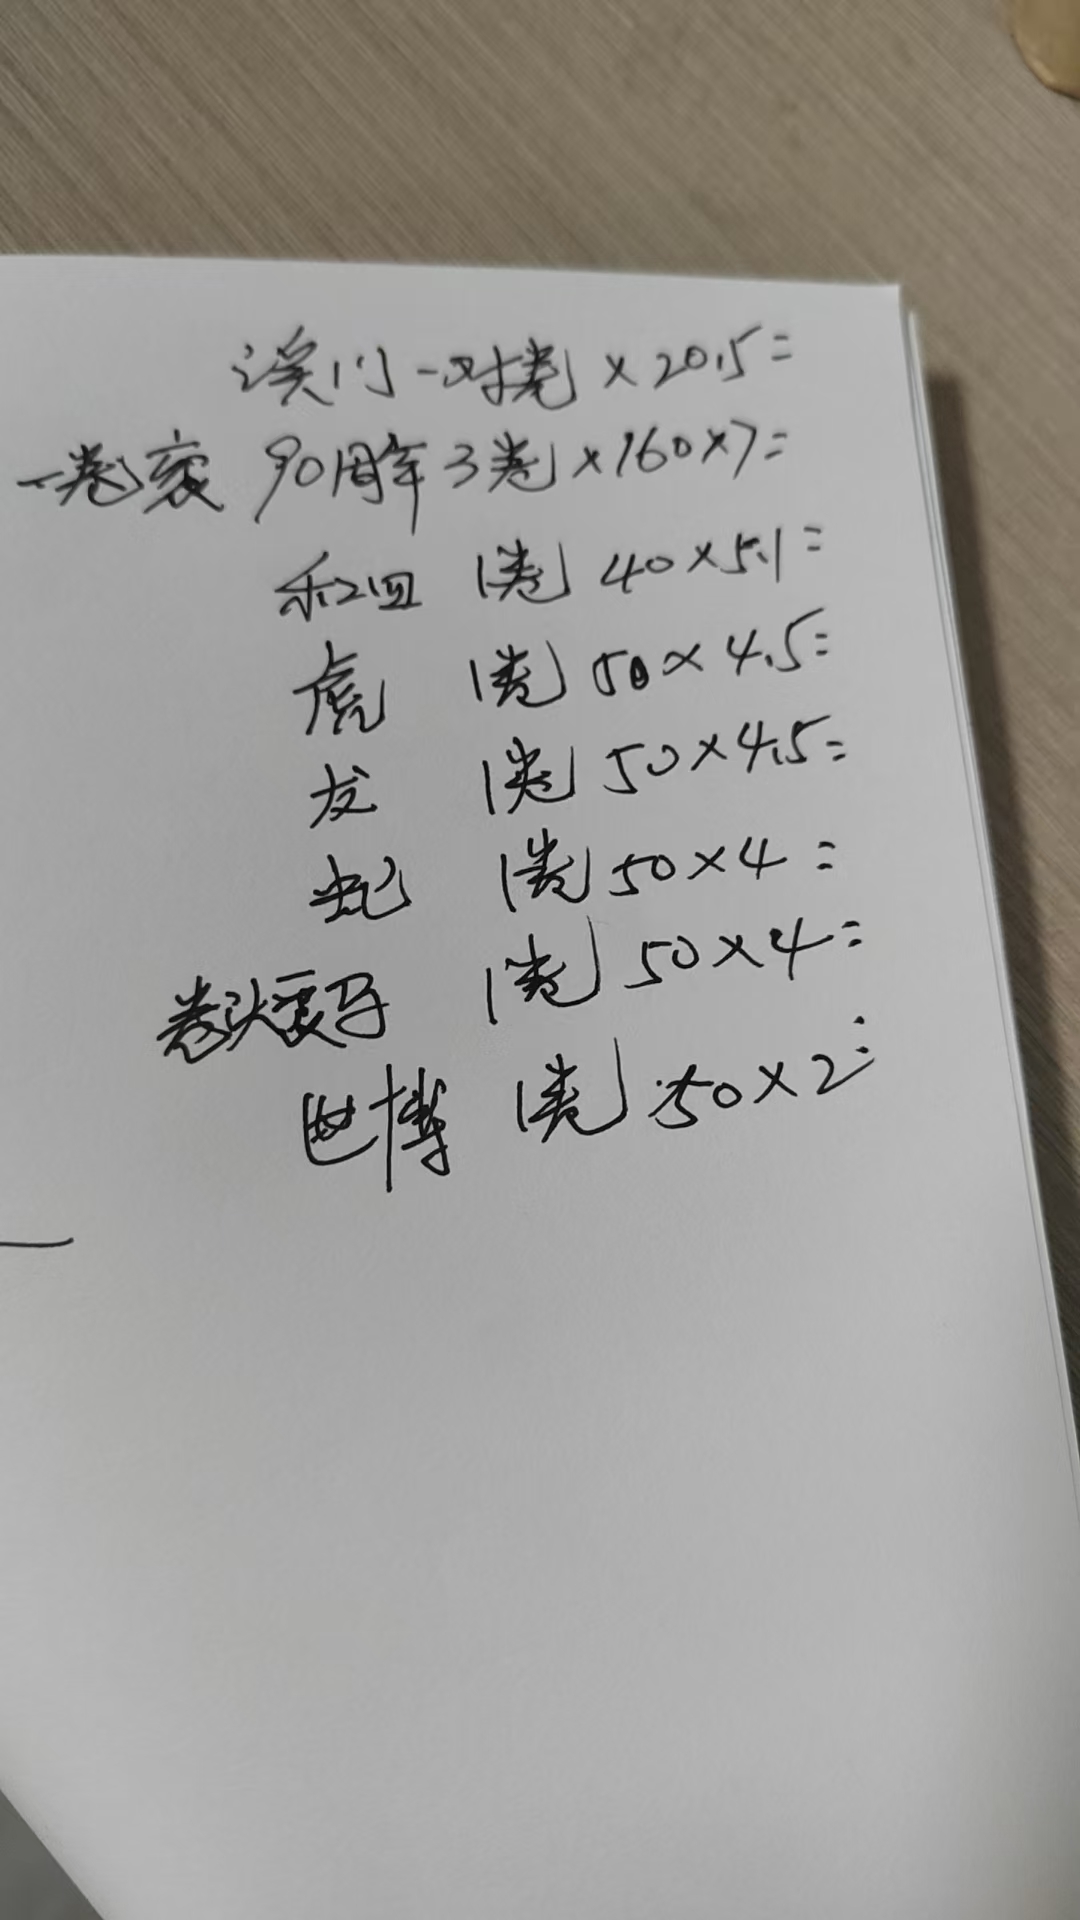 澳门一对捲×20.5=
一卷衰 90周年3卷×160×7=
和四 1卷 40×5.1=
虎 1卷 50×4.5=
龙 1卷 50×4.5=
蛇 1卷 50×4=
卷头衰马 1卷 50×4=
世博 1卷 50×2=